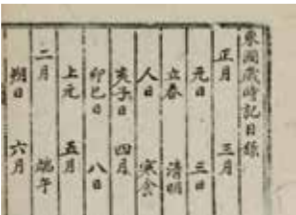 東國歲時記目錄
正月 三月
元日 三日
立春 清明
人日 寒食
亥子日 四月
卯巳日 八日
上元 五月
二月 端午
朔日 六月